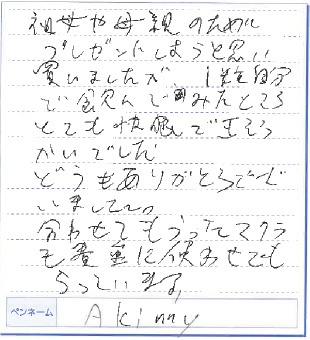 祖母や母親のために
プレゼントしようと思い
買いましたが、1粒自分
で飲んでみたところ
とても快眠でき
でした
どうもありがとうござ
いました。
合わせてもらったマクラ
も重宝に使わせても
らっています。
ペンネーム Akinny